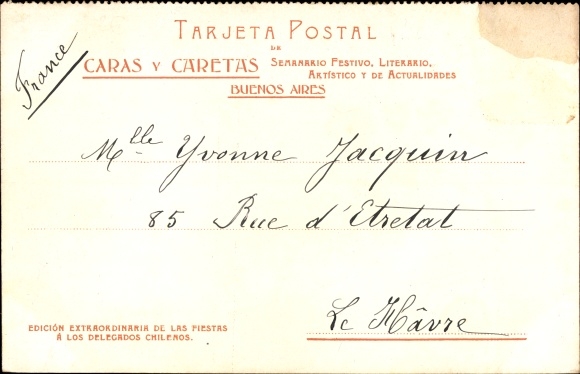 TARJETA POSTAL
DE
CARAS Y CARETAS SEMANARIO FESTIVO, LITERARIO,
ARTÍSTICO Y DE ACTUALIDADES
BUENOS AIRES
France
Mlle Yvonne Jacquin
85 Rue d'Etretat
Le Hâvre
EDICIÓN EXTRAORDINARIA DE LAS FIESTAS
Á LOS DELEGADOS CHILENOS.